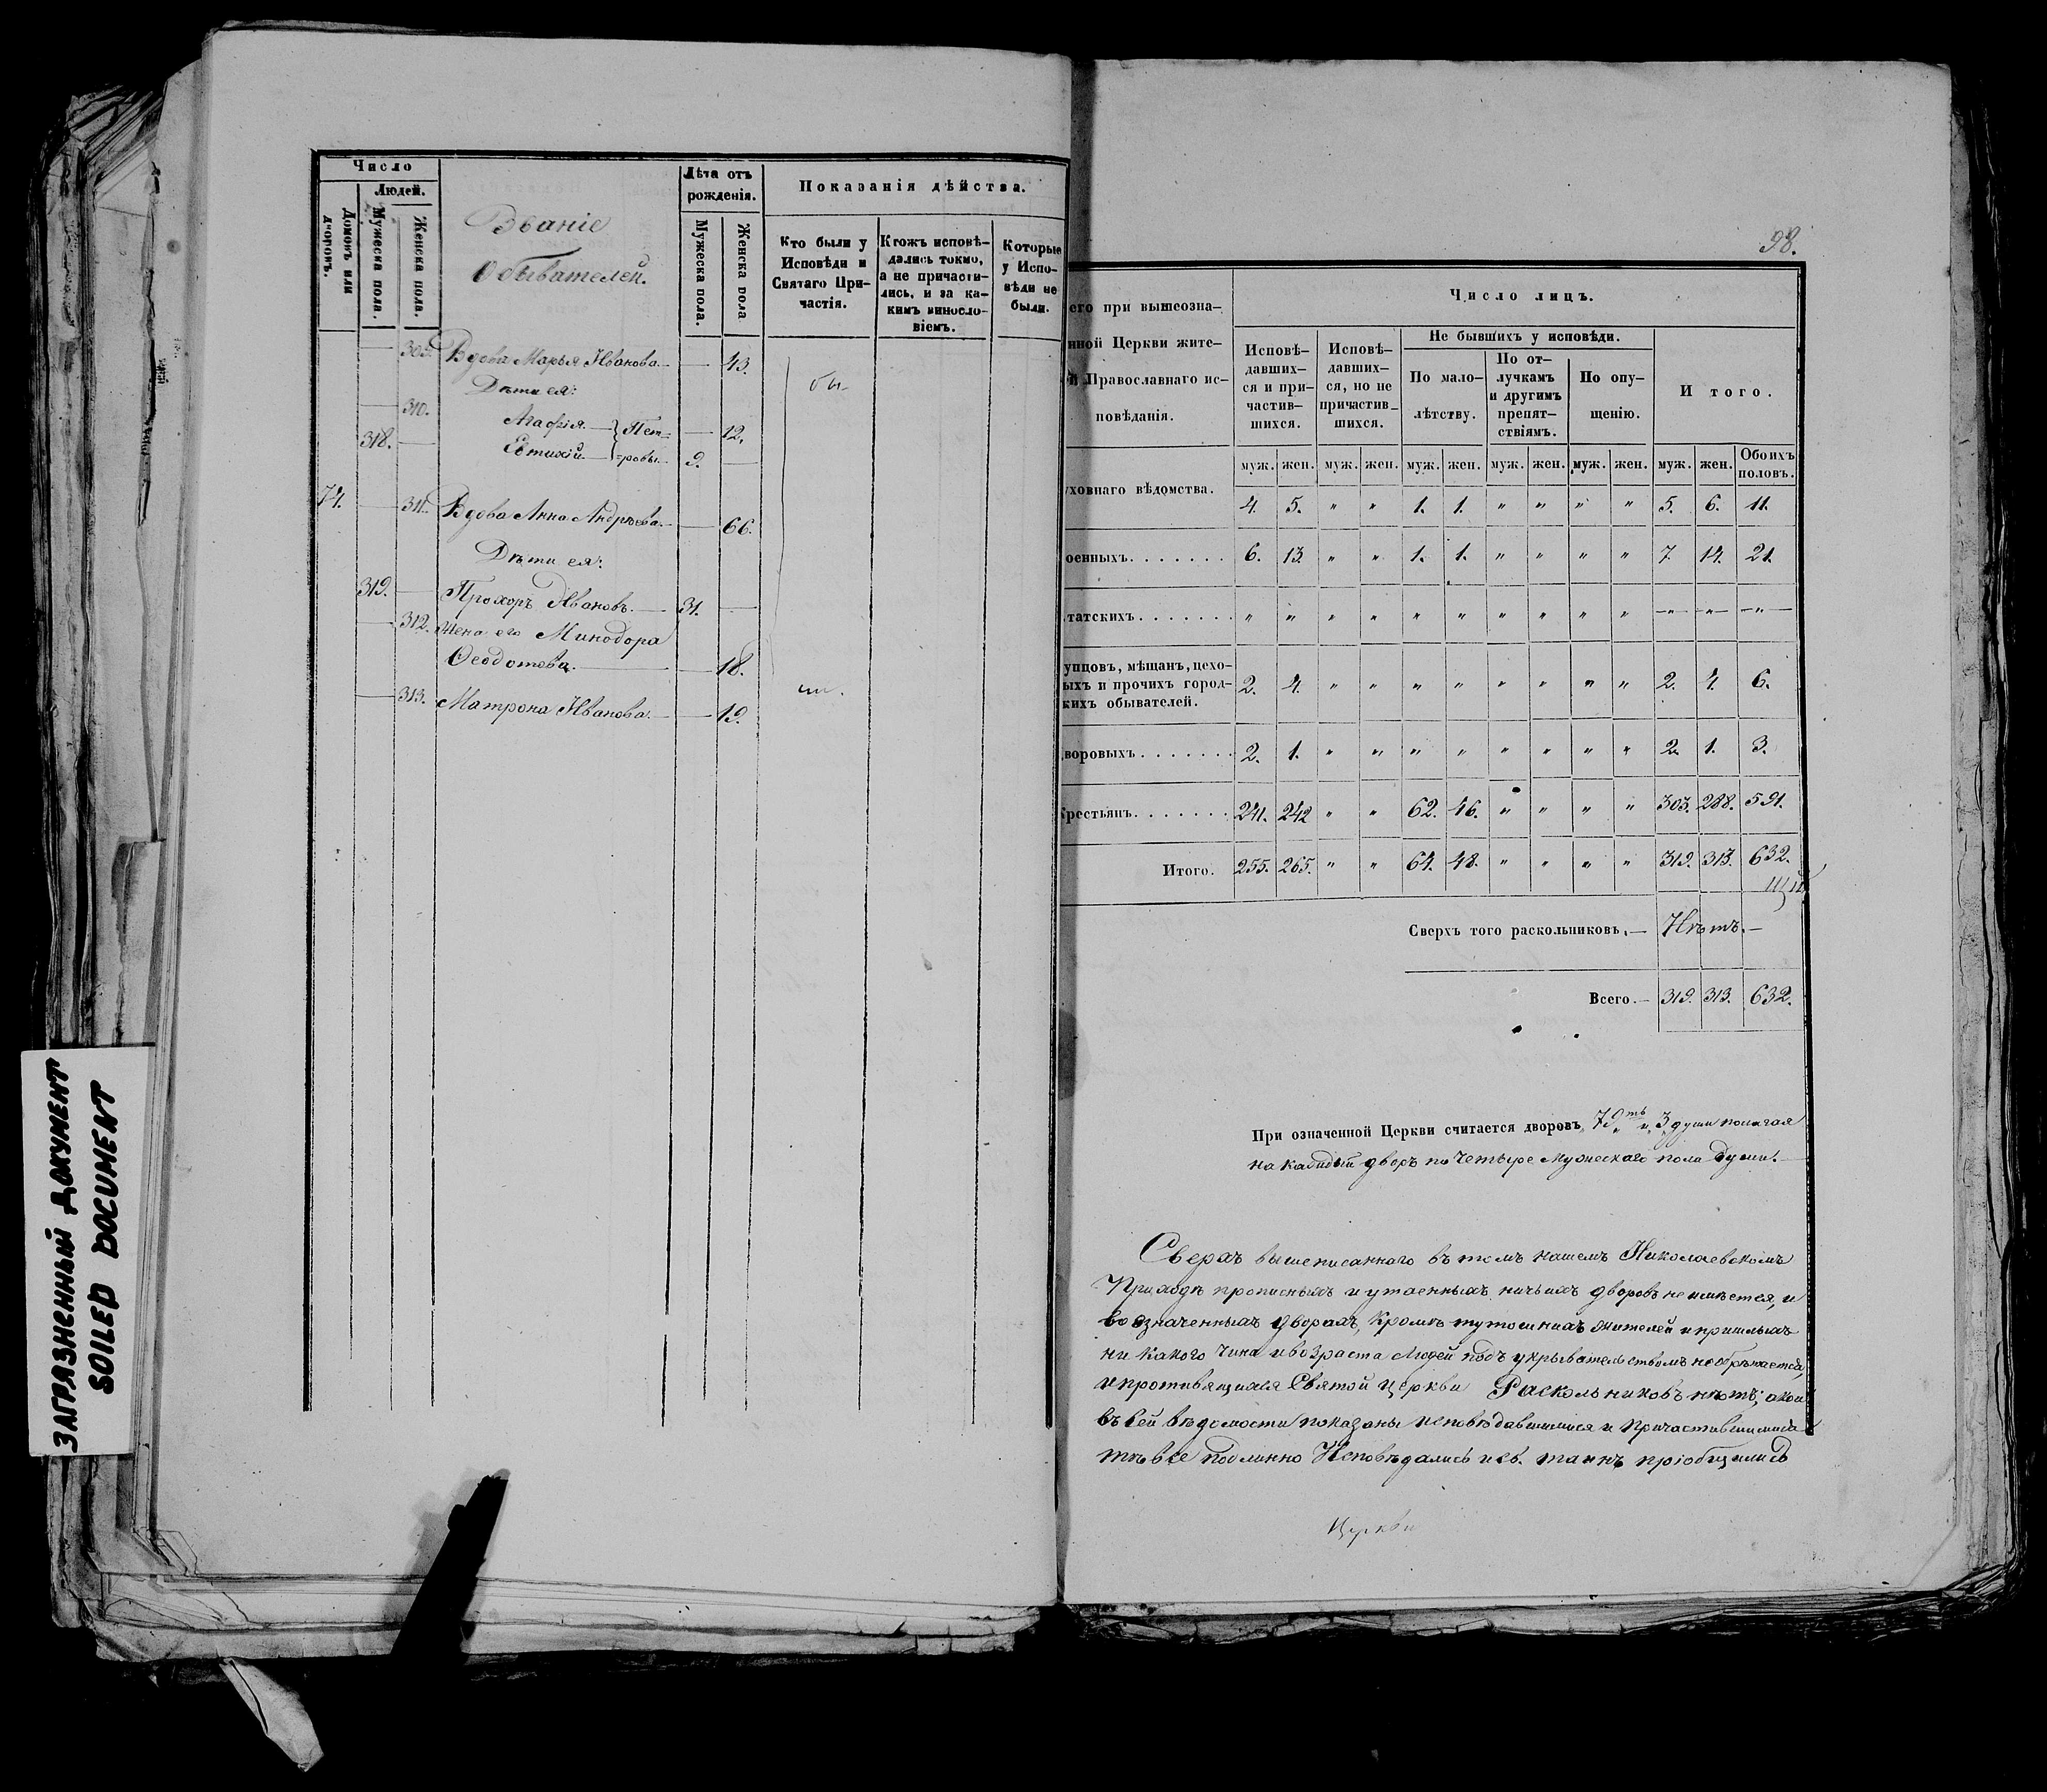 Число
Людей.
Домовъ или дворовъ.
Мужеска пола.
Женска пола.
Званіе
Обывателей.
Лѣта отъ
рожденія.
Мужеска пола.
Женска пола
Показанія дѣйства.
Кто были у
Исповѣди и
Святаго При-
частія.
Ктожъ исповѣ-
дались токмо,
а не причасти-
лись, и за ка-
кимъ винослo-
віемъ.
Которые
у Испо-
вѣди не
были.
309. Вдова Марья Иванова. — 43.
Дѣти ея:
бы-
310. Агафія } Пет= — 12.
318. — Евтихій } =ровы. 9. —
74. — 311. Вдова Анна Андрѣева. — 66.
Дѣти ея:
319. — Прохоръ Ивановъ. — 31. —
— 312. Жена его Минодора
Ѳеодотова. — 18.
ли.
— 313. Матрона Иванова. — 19.
98.
его при вышеозна-
нной Церкви жите-
й Православнаго ис-
повѣданія.
Число лицъ.
Исповѣ-
давших-
ся и при-
частив-
шихся.
Исповѣ-
давших-
ся, но не
причастив-
шихся.
Не бывшихъ у исповѣди.
По мало-
лѣтству.
По от-
лучкамъ
и другимъ
препят-
ствіямъ.
По опу-
щенію.
И того.
муж. жен. муж. жен. муж. жен. муж. жен. муж. жен. муж. жен. Обоихъ половъ.
уховнаго вѣдомства. 4. 5. " " 1. 1. " " " " 5. 6. 11.
оенныхъ. . . . . . . 6. 13. " " 1. 1. " " " " 7. 14. 21.
татскихъ. . . . . . . " " " " " " " " " " —"— —"— —"—
упцовъ, мѣщанъ, цехо-
ыхъ и прочихъ город- 2. 4. " " " " " " " " 2. 4. 6.
кихъ обывателей.
воровыхъ. . . . . . . 2. 1. " " " " " " " " 2. 1. 3.
крестьянъ. . . . . . . 241. 242 " " 62. 46. " " " " 303. 288. 591.
Итого. 255. 265. " " 64. 48. " " " " 319. 313. 632.
Сверхъ того раскольниковъ. — Нѣтъ. —
Всего. — 319. 313. 632.
При означенной Церкви считается дворовъ 79ть и 3 души полагая
на каждый дворъ по четыре Мужескаго пола Души. —
Сверхъ вышеписаннаго въ томъ нашемъ Николаевскомъ
Приходѣ прописныхъ и утаенныхъ ничьихъ дворовъ не имѣется, и
во означенныхъ дворахъ, кромѣ тутошнихъ жителей и пришлыхъ
ни какого чина и возраста Людей подъ укрывательствомъ не обрѣтается,
и противящихся Святой церкви Раскольниковъ нѣтъ; а кои
въ сей вѣдомости показаны исповѣдавшимися и Причастившимися
тѣ всѣ подлинно Исповѣдались и св. таинъ пріобщились
Церкви
ЗАГРЯЗНЕННЫЙ ДОКУМЕНТ
SOILED DOCUMENT